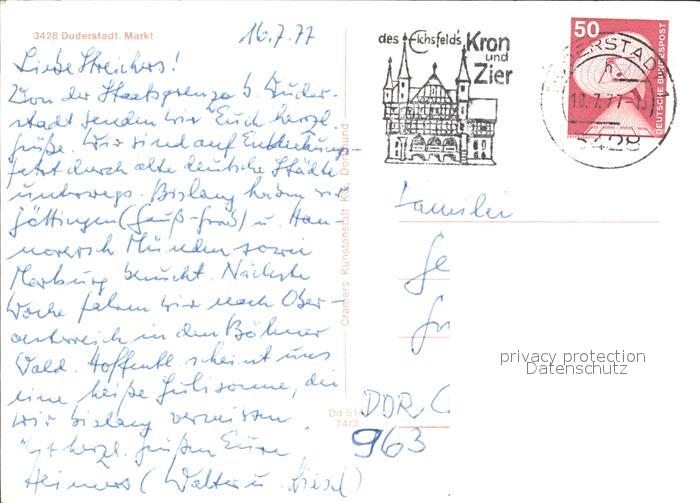 3428 Duderstadt. Markt
16.7.77
Liebe Streichers!
Von der Staatsgrenze b. Duder-
stadt senden wir Euch herzl.
Grüße. Wir sind auf Entdeckungs-
fahrt durch alte deutsche Städte
unterwegs. Bislang haben wir
Göttingen (Gauß-Grab) u. Han-
noversch Münden sowie
Marburg besucht. Nächste
Woche fahren wir nach Ober-
oesterreich in den Böhmer
Wald. Hoffentl. scheint uns
eine heiße Julisonne, die
wir bislang vermissen.
Mit herzl. Grüßen Eure
Heimers (Walter u. Liesel)
Cramers Kunstanstalt KG, Dortmund
Dd 51
74/3
des Eichsfeld's Kron
und
Zier
50
DEUTSCHE BUNDESPOST
DUDERSTADT
h
18.7.77-15
3428
Familie
Ge
DDR
963
privacy protection
Datenschutz